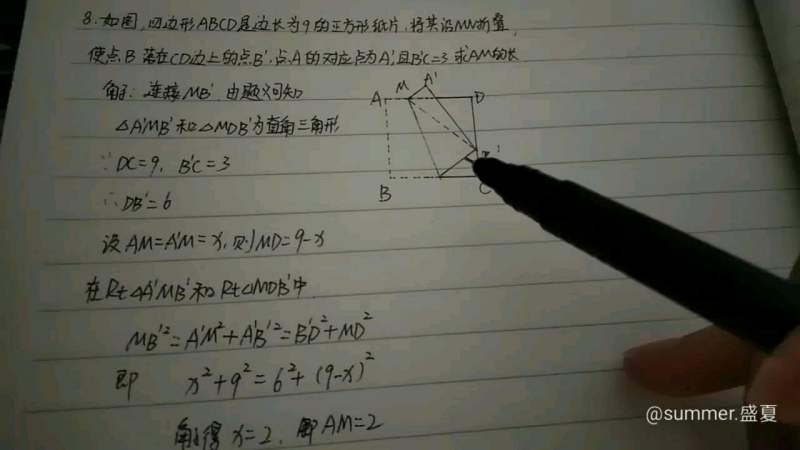 8. 如图,四边形ABCD是边长为9的正方形纸片,将其沿MN折叠,
使点B落在CD边上的点B′,点A的对应点为A′,且B′C=3,求AM的长
解: 连接MB′, 由题义可知
△A′MB′和△MDB′为直角三角形
∵DC=9, B′C=3
∴DB′=6
设AM=A′M=x, 则MD=9-x
在Rt△A′MB′和Rt△MDB′中
MB′²=A′M²+A′B′²=B′D²+MD²
即 x²+9²=6²+(9-x)²
解得x=2, 即AM=2
A M A′ D
B C
@summer.盛夏